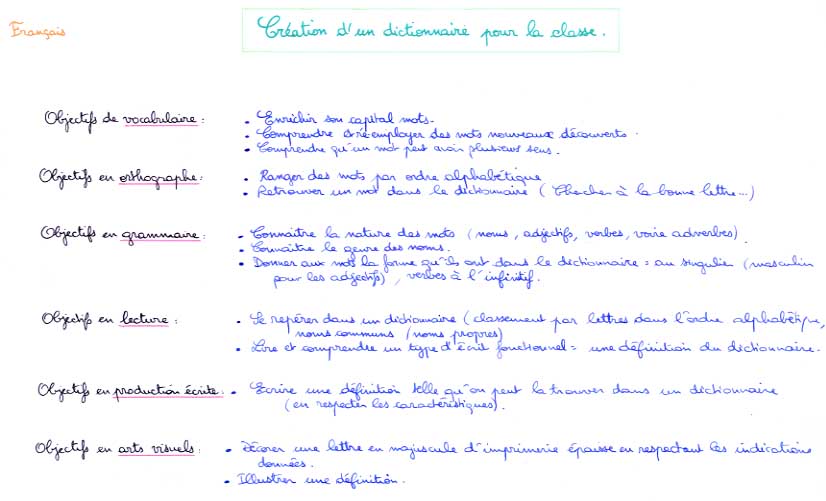 Français
Création d'un dictionnaire pour la classe.
Objectifs de vocabulaire :
• Enrichir son capital mots.
• Comprendre et réemployer des mots nouveaux découverts.
• Comprendre qu'un mot peut avoir plusieurs sens.
Objectifs en orthographe :
• Ranger des mots par ordre alphabétique
• Retrouver un mot dans le dictionnaire (Chercher à la bonne lettre...)
Objectifs en grammaire :
• Connaître la nature des mots (noms, adjectifs, verbes, voire adverbes).
• Connaître le genre des noms.
• Donner aux mots la forme qu'ils ont dans le dictionnaire = au singulier (masculin
pour les adjectifs), verbes à l'infinitif.
Objectif en lecture :
• Se repérer dans un dictionnaire (classement par lettres dans l'ordre alphabétique,
noms communs / noms propres)
• Lire et comprendre un type d'écrit fonctionnel = une définition du dictionnaire.
Objectifs en production écrite :
• Ecrire une définition telle qu'on peut la trouver dans un dictionnaire
(en respecter les caractéristiques).
Objectif en arts visuels :
• Décorer une lettre en majuscule d'imprimerie épaisse en respectant les indications
données.
• Illustrer une définition.